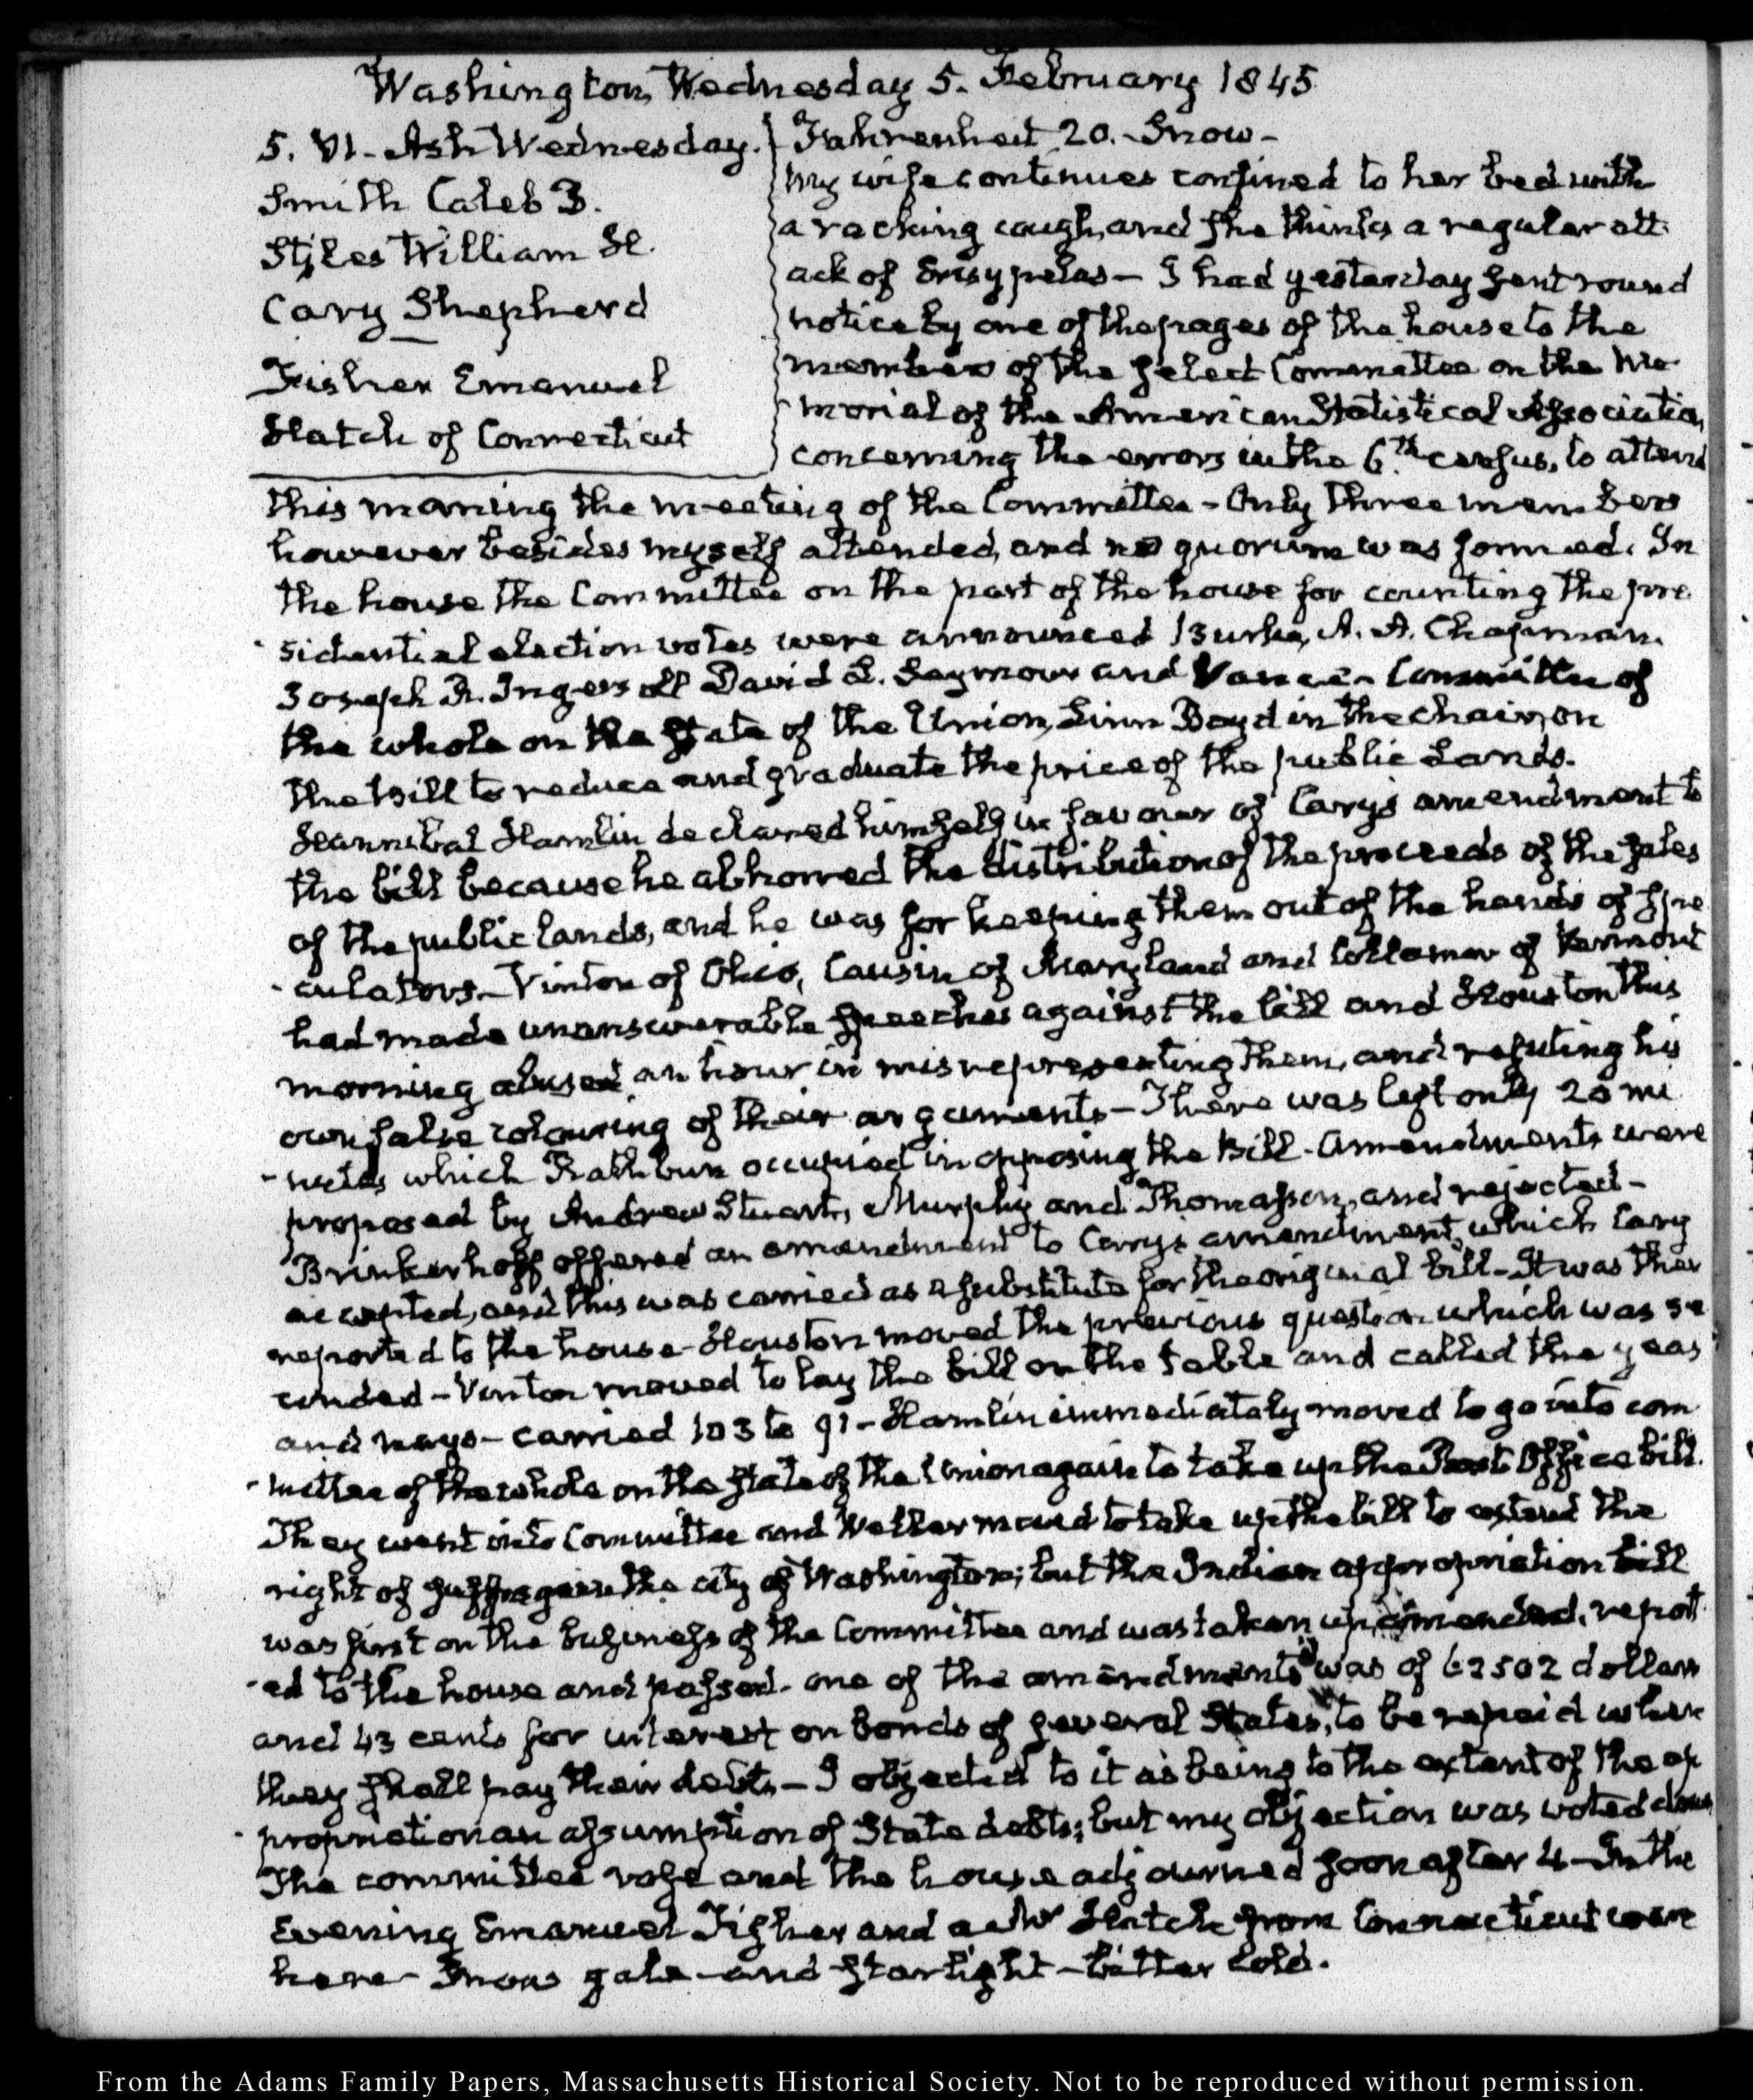 Washington, Wednesday 5. February 1845
5. VI. Ash Wednesday.
Smith Caleb B.
Stiles William H.
Cary Shepherd
Fisher Emanuel
Hatch of Connecticut
Fahrenheit 20. Snow-
My wife continues confined to her bed with
a racking cough, and she thinks a regular att
ack of Erisypelas — I had yesterday sent round
notice by one of the pages of the house to the
members of the select Committee on the Me
-morial of the American Statistical Association,
concerning the errors in the 6th. census, to attend
this morning the meeting of the Committee - Only three members
however besides myself attended, and no quorum was formed. In
the house the Committee on the part of the house for counting the pre
-sidential election votes were announced Burke, A. A. Chapman.
Joseph R. Ingersoll David L. Seymour and Vance - Committee of
the whole on the state of the Union, Linn Boyd in the chair, on
the bill to reduce and graduate the price of the public Lands.
Hannibal Hamlin declared himself in favour of Cary's amendment to
the bill because he abhorred the distribution of the proceeds of the sales
of the public lands, and he was for keeping them out of the hands of spe
-culators - Vinton of Ohio, Causin of Maryland and Collamer of Vermont
had made unanswerable speeches against the bill and Houston this
morning abused an hour in misrepresenting them, and refuting his
own false colouring of their arguments - There was left only 20 mi
-nutes which Rathbun occupied in opposing the Bill - Amendments were
proposed by Andrew Stuart, Murphy and Thomasson, and rejected -
Brinkerhoff offered an amendment to Cary's amendment, which Cary
accepted, and this was carried as a substitute for the original bill - It was then
reported to the house - Houston moved the previous question which was se
conded - Vinton moved to lay the bill on the table and called the yeas
and nays - carried 103 to 91 - Hamlin immediately moved to go into com
-mittee of the whole on the state of the Union again to take up the Post Office bill.
They went into Committee and Weller moved to take up the bill to extend the
right of suffrage in the city of Washington; but the Indian appropriation bill
was first on the business of the Committee and was taken up, amended, report
-ed to the house and passed - one of the amendments was of 62502 dollars
and 43 cents for interest on bonds of several States, to be repaid when
they shall pay their debts — I objected to it as being to the extent of the ap
-propriation an assumption of State debts; but my objection was voted down
The committee rose and the house adjourned soon after 4 - In the
Evening Emanuel Fisher and a Mr Hatch from Connecticut were
here - Snow gale and starlight - bitter cold.
From the Adams Family Papers, Massachusetts Historical Society. Not to be reproduced without permission.